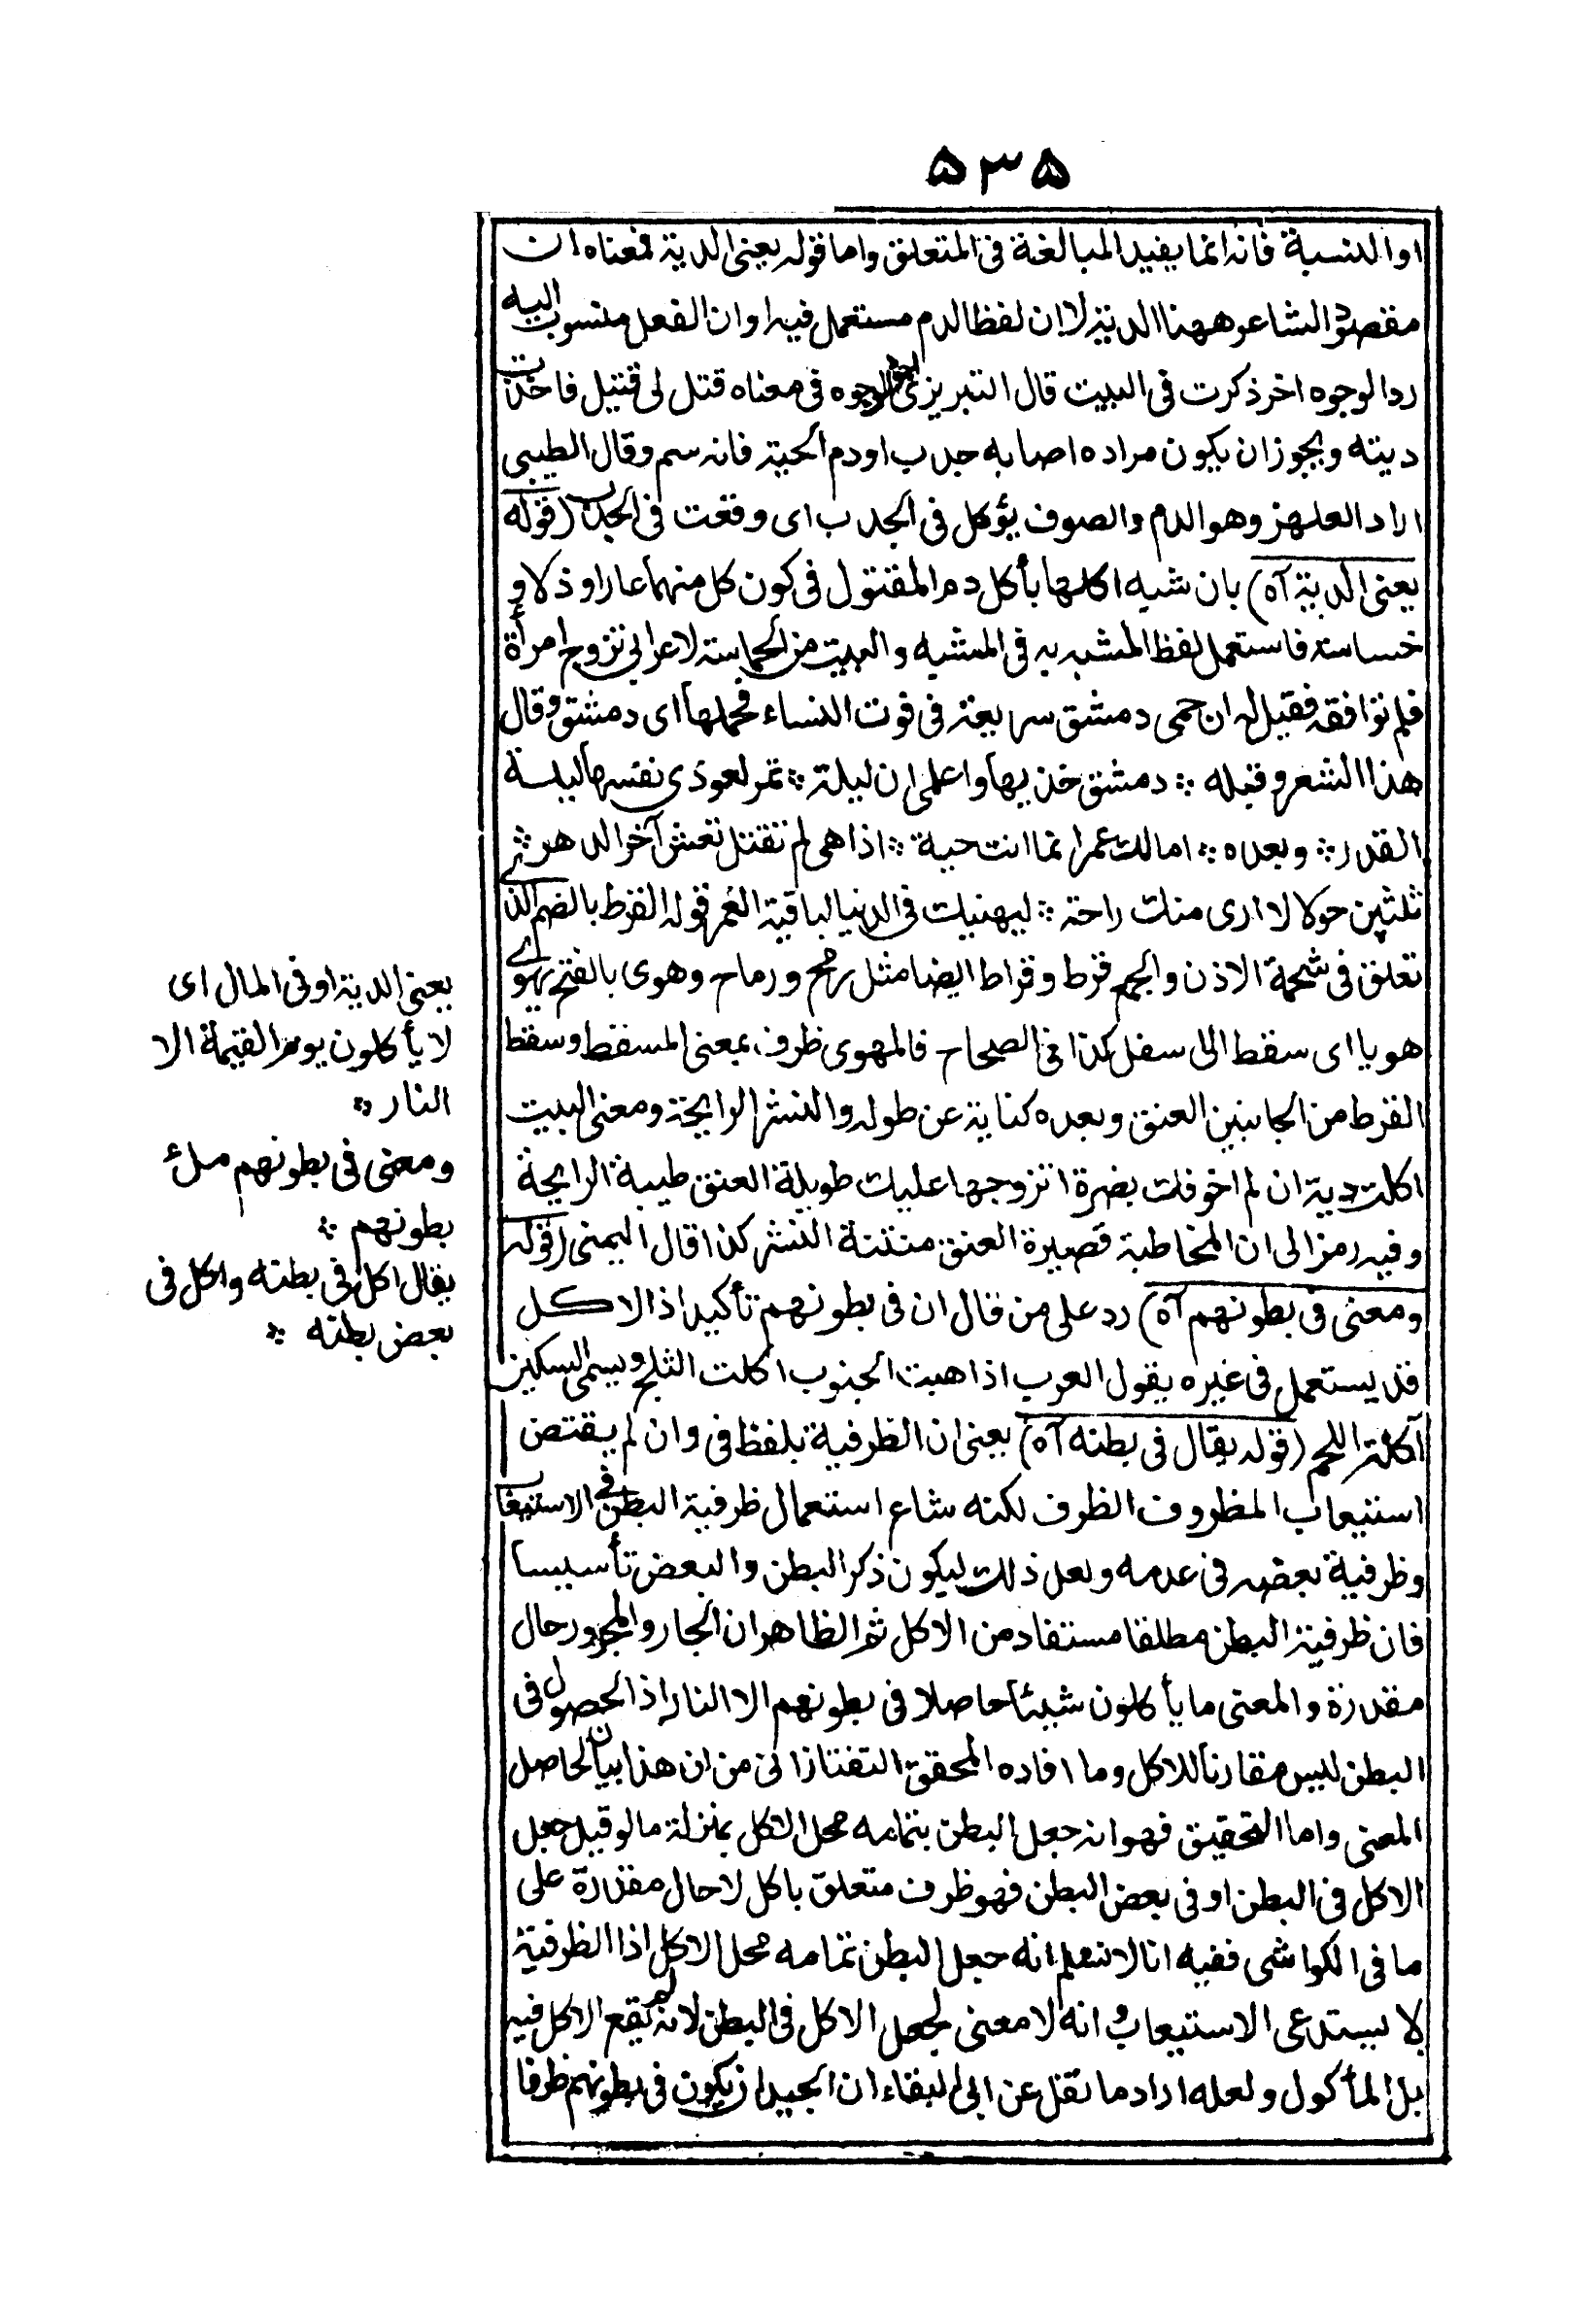 ۵۳۵
او النسبة فانه انما يفيد المبالغة فى المتعلق واما قوله يعنى الدية فمعناه ان
مقصود الشاعر ههنا الدية لا ان لفظ الدم مستعمل فيه او ان الفعل منسوب اليه
رد الوجوه اخر ذكرت فى البيت قال التبريزى اجود الوجوه فى معناه قتل لى قتيل فاخذت
ديته ويجوز ان يكون مراده اصابه جدب او دم الحية فانه سم وقال الطيبى
اراد العلهز وهو الدم والصوف يؤكل فى الجدب اى وقعت فى الجدب (قوله
يعنى الدية آه) بان شبه اكلها بأكل دم المقتول فى كون كل منهما عارا وذلا و
خساسته فاستعمل لفظ المشبه به فى المشبه والبيت من الحماسة لاعرابى تزوج امرأة
فلم توافقه فقيل له ان حمى دمشق سريعة فى فوت النساء فحملها اى دمشق وقال
هذا الشعر وقبله ❊ دمشق خذيها واعلمى ان ليلة ❊ تمر لعودى نفسها ليلة
القدر ❊ وبعده ❊ امالك عمر انما انت حية ❊ اذا هى لم تقتل تعش آخر الدهر ❊
ثلثين حولا لا ارى منك راحة ❊ ليهنيك فى الدنيا لباقية العمر قوله القرط بالضم الذى
تعلق فى شحمة الاذن والجمع قرط وقراط ايضا مثل رمح ورماح وهوى بالفتح يهوى
هويا اى سقط الى سفل كذا فى الصحاح فالمهوى ظرف بمعنى المسقط وسقط
القرط من الجانبين العنق وبعده كناية عن طوله والنشر الرايحة ومعنى البيت
اكلت دية ان لم اخوفك بضرة اتزوجها عليك طويلة العنق طيبة الرايحة
وفيه رمز الى ان المخاطبة قصيرة العنق منتنة النشر كذا قال اليمنى (قوله
ومعنى فى بطونهم آه) رد على من قال ان فى بطونهم تأكيد اذ الاكل
قد يستعمل فى غيره يقول العرب اذا هبت الجنوب اكلت الثلج ويسمى السكين
آكلة اللحم (قوله يقال فى بطنه آه) يعنى ان الظرفية بلفظ فى وان لم يقتض
استيعاب المظروف الظرف لكنه شاع استعمال ظرفية البطن فى الاستيعاب
وظرفية بعضه فى عدمه ولعل ذلك ليكون ذكر البطن والبعض تأسيسا
فان ظرفية البطن مطلقا مستفاد من الاكل ثم الظاهر ان الجار والمجرور حال
مقدرة والمعنى ما يأكلون شيئا حاصلا فى بطونهم الا النار اذ الحصول فى
البطن ليس مقارنا للاكل وما افاده المحقق التفتازانى من ان هذا بيان لحاصل
المعنى واما التحقيق فهو انه جعل البطن بتمامه محل الاكل بمنزلة ما لو قيل جعل
الاكل فى البطن او فى بعض البطن فهو ظرف متعلق باكل لا حال مقدرة على
ما فى الكواشى ففيه انا لا نعلم انه جعل البطن بتمامه محل الاكل اذا الظرفية
لا يستدعى الاستيعاب وانه لا معنى لجعل الاكل فى البطن لانه لم يقع الاكل فيه
بل المأكول ولعله اراد ما نقل عن ابى البقاء ان الجيد ان يكون فى بطونهم ظرفا
يعنى الدية او فى المال اى
لا يأكلون يوم القيمة الا
النار ❊
ومعنى فى بطونهم ملئ
بطونهم ❊
يقال اكل فى بطنه واكل فى
بعض بطنه ❊